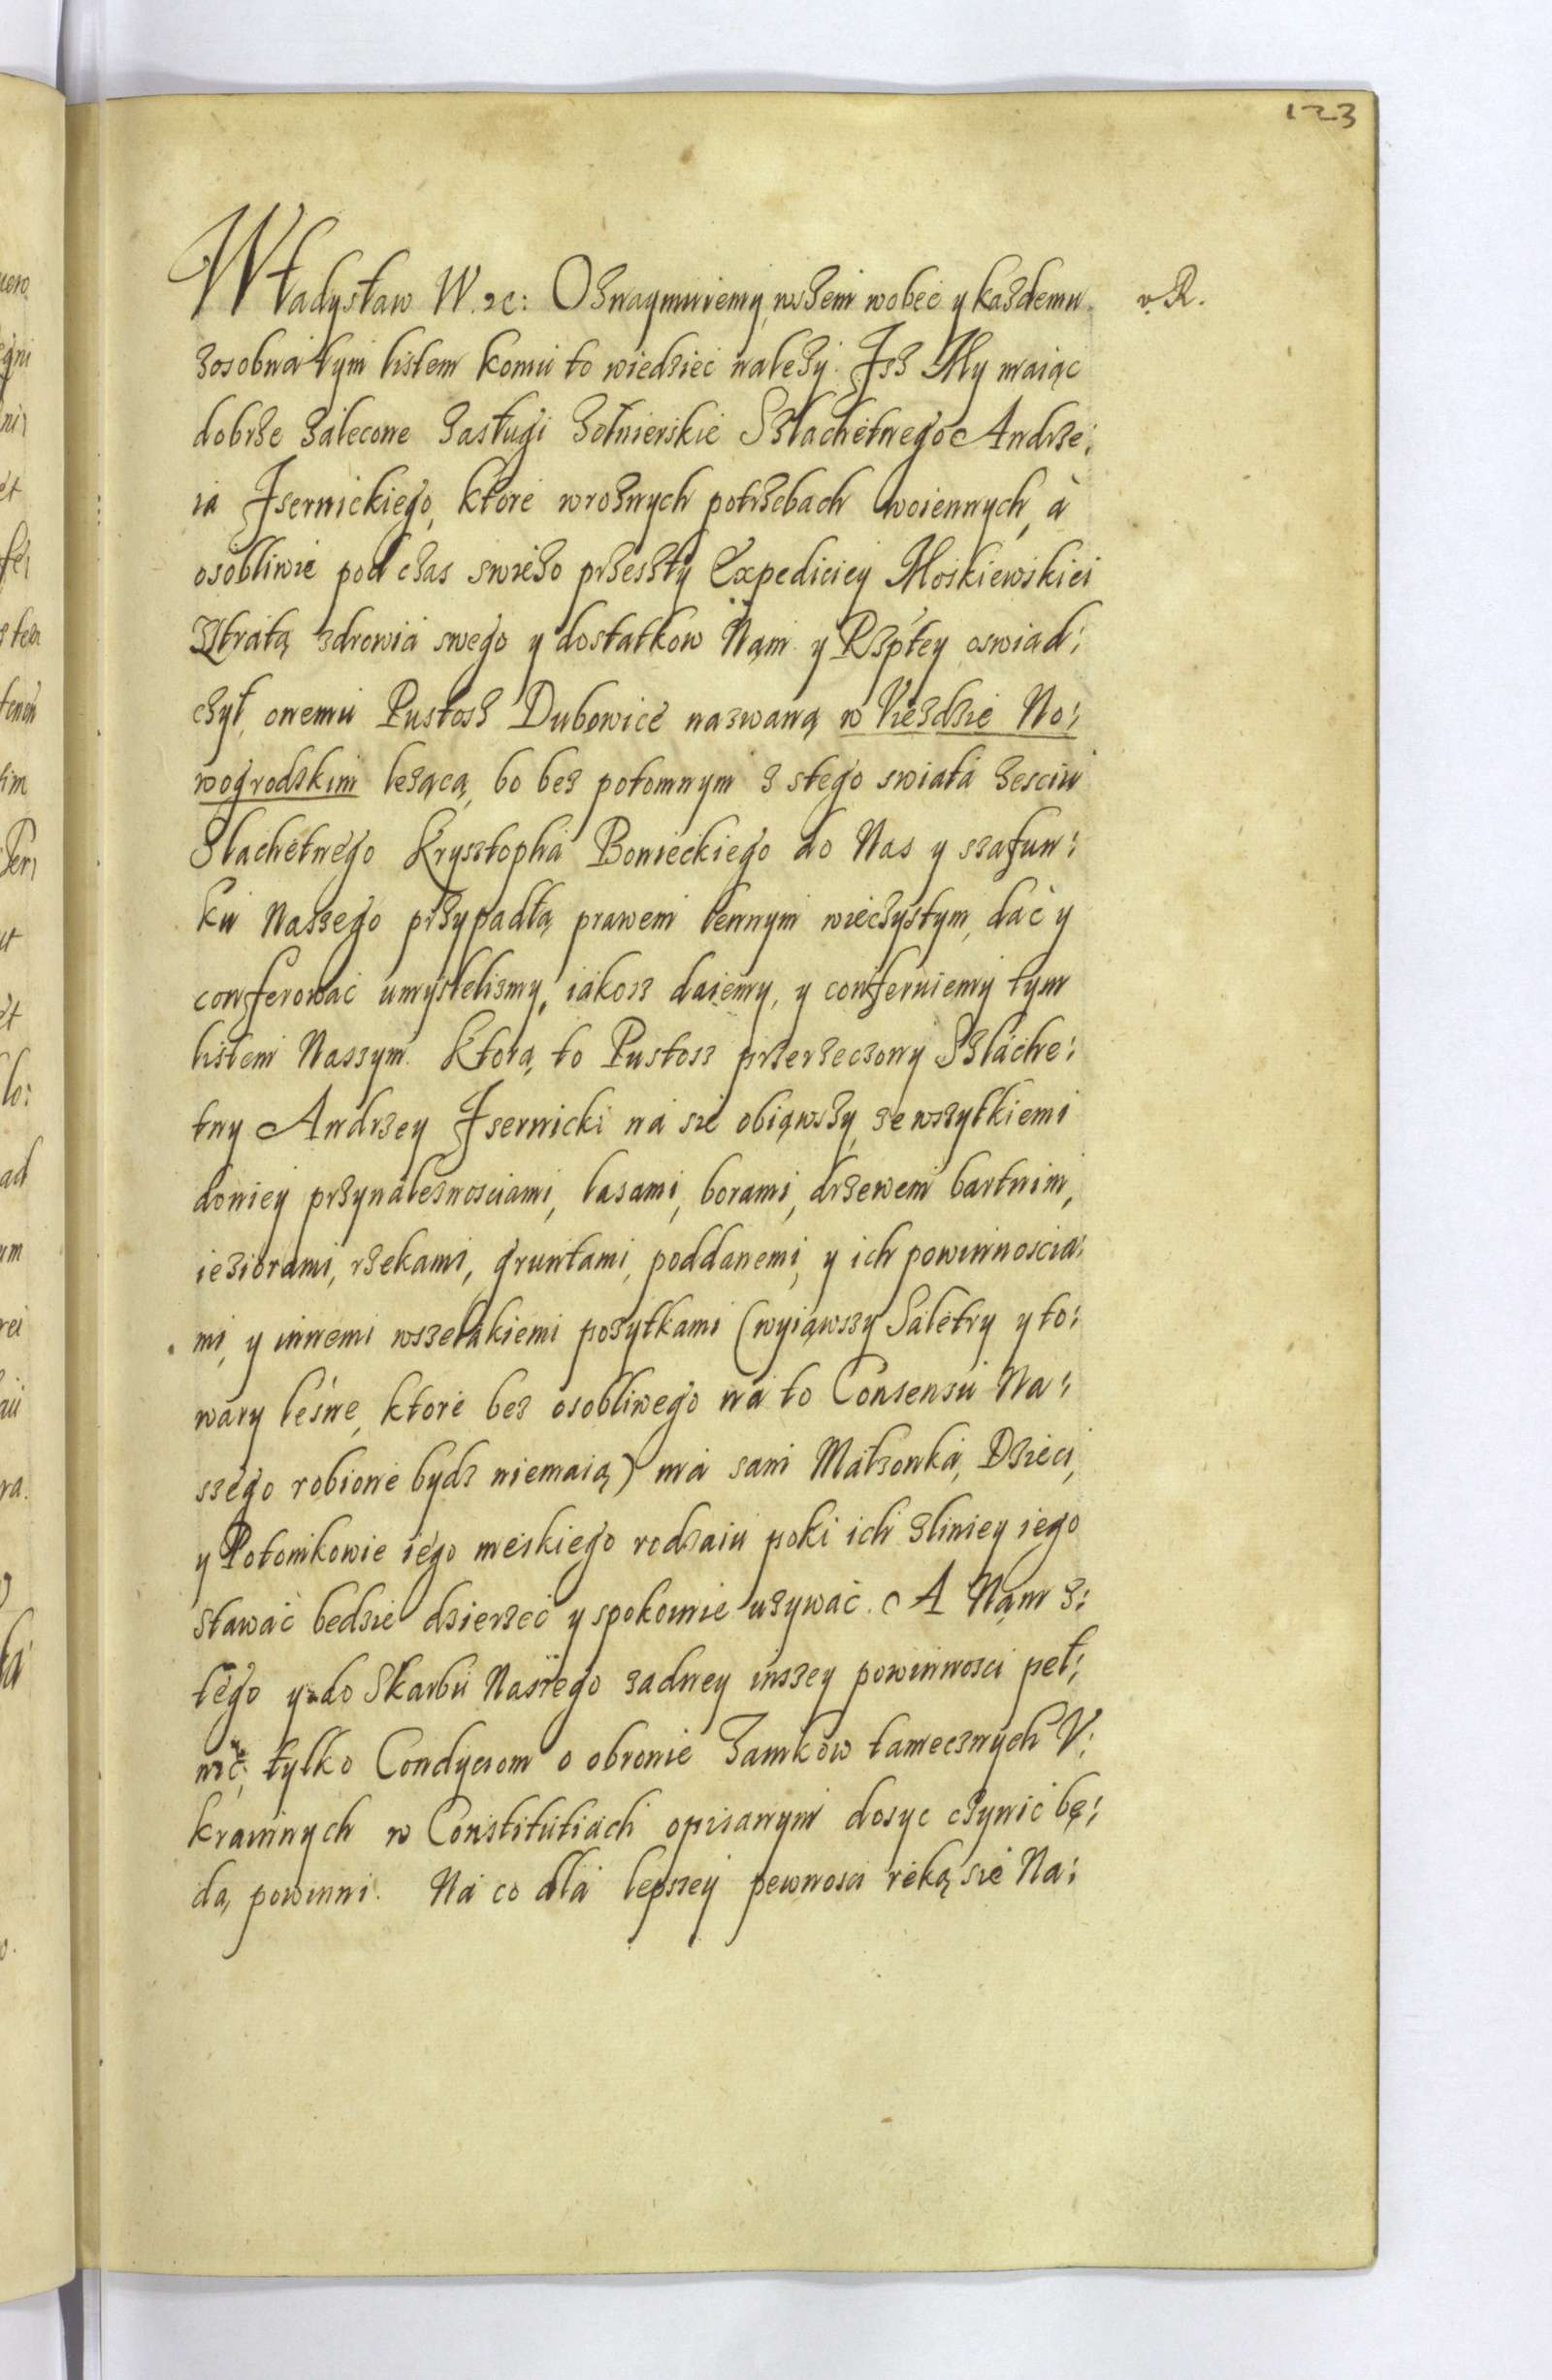 123
Władysław W. &c: Oznaymuiemy, wszem wobec y każdemu
v. R.
zosobna tym listem komu to wiedzieć należy. Isz My maiąc
dobrze zálecone zasługi żołnierskie Szlachetnego Andrze:
ia Isernickiego, ktore wroznych potrzebach woiennych, à
osobliwie pod czas swieżo przeszły Expediciey Moskiewskiei
Zstratą zdrowia swego y dostatkow Nąm y Rzptey oswiad:
czył, onemu Pustosz Dubowice nazwaną w Vieżdzie No:
wogrodzkim leżącą, bo bez potomnym z stego swiata zesciu
Slachetnego Krysztopha Bonieckiego do Nas y szafun:
ku Naszego przypadłą, prawem lennym wieczystym, dać y
conferować umyslelismy, iakosz daiemy, y conferuiemy tym
listem Naszym. Ktorą to Pustosz przerzeczony Szláche:
tny Andrzey Isernicki na sie obiąwszy, ze wszytkiemi
doniey przynaleznosciami, lasami, borami, drzewem bartnim,
ieziorami, rzekami, gruntami, poddanemi, y ich powinnoscia:
mi, y innemi wszelakiemi pożytkami (wyiąwszy Saletry y to:
wary leśne, ktore bez osobliwego ná to Consensu Na:
szego robione bydz niemaią) ma sam Małżonka, Dzieci,
y Potomkowie iego meskiego rodzaiu poki ich zliniey iego
stawać bedzie dzierzeć y spokoinie używać. A Nąm z:
tego y do Skarbu Naszego żadney inszey powinnosci peł:
nić, tylko Condyciom o obronie Zamkow tamecznych V:
krainnych w Constitutiach opisanym dosyc czynić bę:
dą, powinni. Ná co dla lepszey pewnosci reką sie Na: